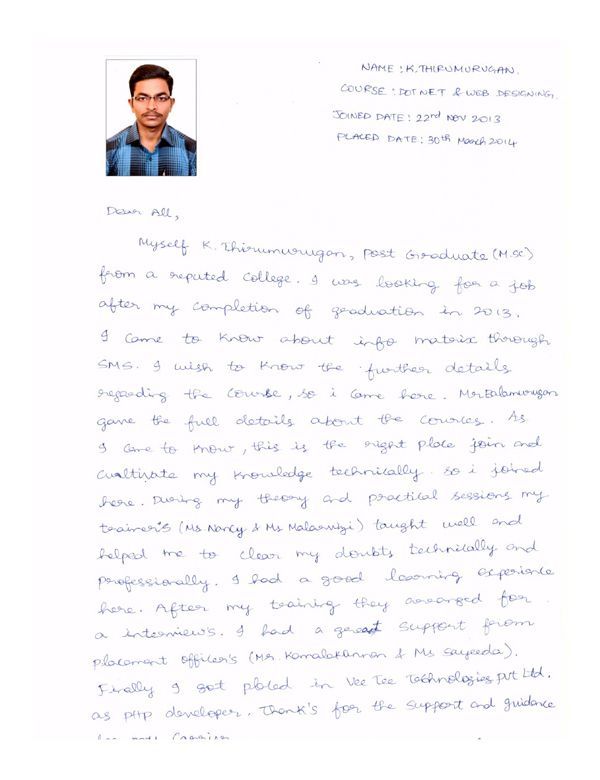 NAME : K.THIRUMURUGAN.
COURSE : DOT NET & WEB DESIGNING.
JOINED DATE : 22nd NOV 2013
PLACED DATE : 30th March 2014
Dear All,
Myself K. Thirumurugan, Post Graduate (M.SC)
from a reputed College. I was looking for a job
after my completion of graduation in 2013.
I came to know about info matrix through
SMS. I wish to know the further details
regarding the course, so i came here. Mr.Balamurugan
gave the full details about the cources. As
I came to know, this is the right place join and
cultivate my knowledge technically. so i joined
here. During my theory and practical sessions my
trainer's (Ms Nancy & Ms Malarvizi) taught well and
helped me to clear my doubts technically and
professionally. I had a good learning experience
here. After my training they arranged for
a interview's. I had a great support from
placement officer's (Mr. Kamalakannan & Ms Sayeeda).
Finally I got placed in Vee Tee Technologies Pvt Ltd.
as PHP developer. Thank's for the support and guidance